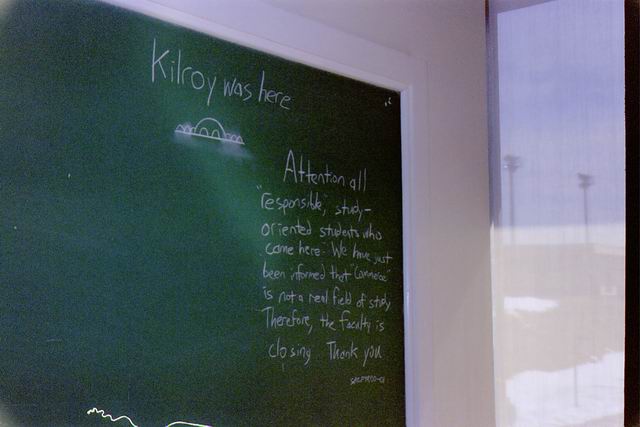 Kilroy was here
Attention all
"responsible," study-
oriented students who
came here: We have just
been informed that "Commerce"
is not a real field of study
Therefore, the faculty is
closing Thank you